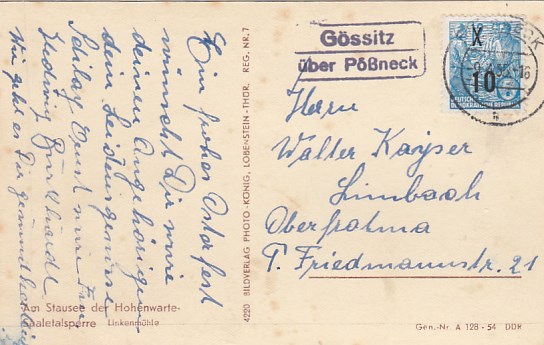 Gössitz
über Pößneck
X
10
DEUTSCHE
DEMOKRATISCHE REPUBLIK
Herrn
Walter Kayser
Limbach
Oberfrohna
T. Friedmannstr. 21
Ein frohes Osterfest
wünscht Dir wie
deinen Angehörigen
dein Leidensgenosse
Ludwig Burkhardt
Wie geht es Dir gesundheitlich
4220 BILDVERLAG PHOTO-KÖNIG, LOBENSTEIN-THÜR. REG. NR. 7
Am Stausee der Hohenwarte-
Saaletalsperre Linkenmühle
Gen.-Nr. A 128 - 54 DDR